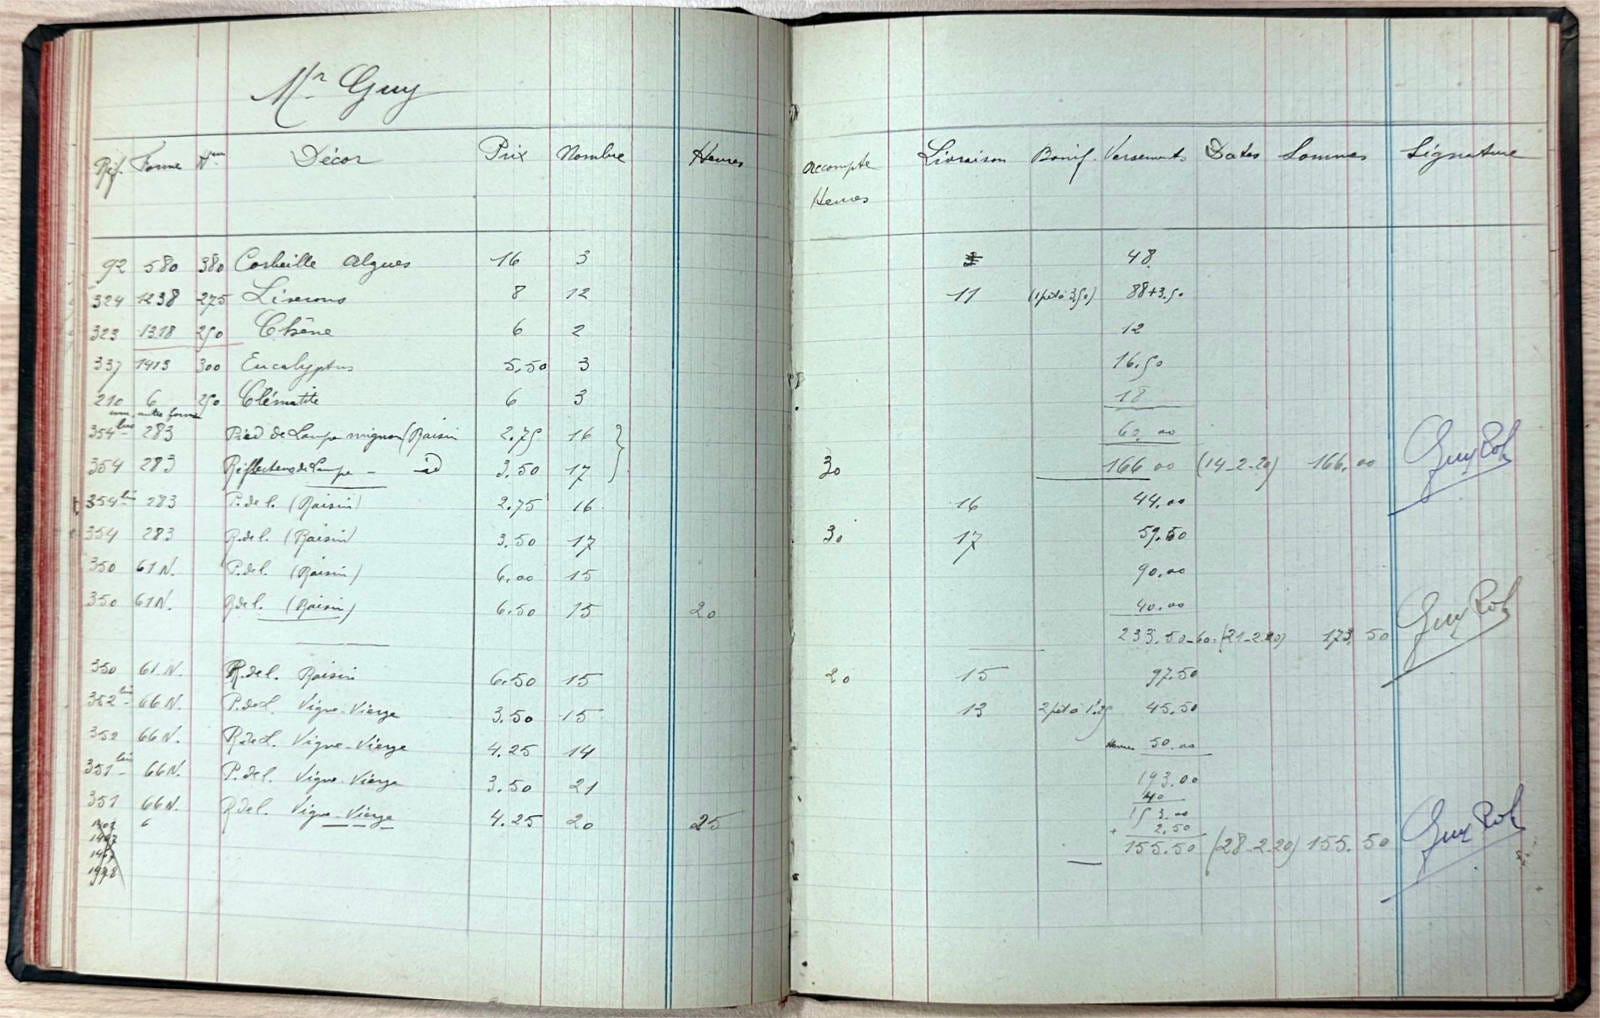 Mr Guy
Réf. Forme Décor Prix Nombre Heures accompte Livraison Bonif. Versements Dates Sommes Signature
Heures
92 580 380 Corbeille Algues 16 3 48
324 1238 275 Liserons 8 12 11 (1 pet à 3,50) 88+3.50
323 1318 250 Chêne 6 2 12
337 1413 300 Eucalyptus 5.50 3 16.50
210 6 250 Clématite 6 3 18
une autre forme
354 bis 283 Pied de Lampe mignon (Raisin 2.75 16 60.00
354 283 Réflecteur de Lampe - id 3.50 17 30 166.00 (14-2-20) 166.00 Guy Rol
354 bis 283 P. de l. (Raisin) 2.75 16 16 44.00
354 283 R. de l. (Raisin) 3.50 17 30 17 59.50
350 61 N. P. de l. (Raisin) 6.00 15 90.00
350 61 N. R de l. (Raisin) 6.50 15 20 40.00
233.50-60= (21-2-20) 173.50 Guy Rol
350 61 N. R. de l. Raisin 6.50 15 20 15 97.50
352 bis 66 N. P. de L. Vigne-Vierge 3.50 15 13 2 pet à 1.25 45.50
352 66 N. R. de L. Vigne-Vierge 4.25 14 Heures 50.00
351 bis 66 N. P. de l. Vigne-Vierge 3.50 21 193.00
40
351 66 N. R de l. Vigne-Vierge 4.25 20 25 153.00
6 + 2.50
155.50 (28-2-20) 155.50 Guy Rol